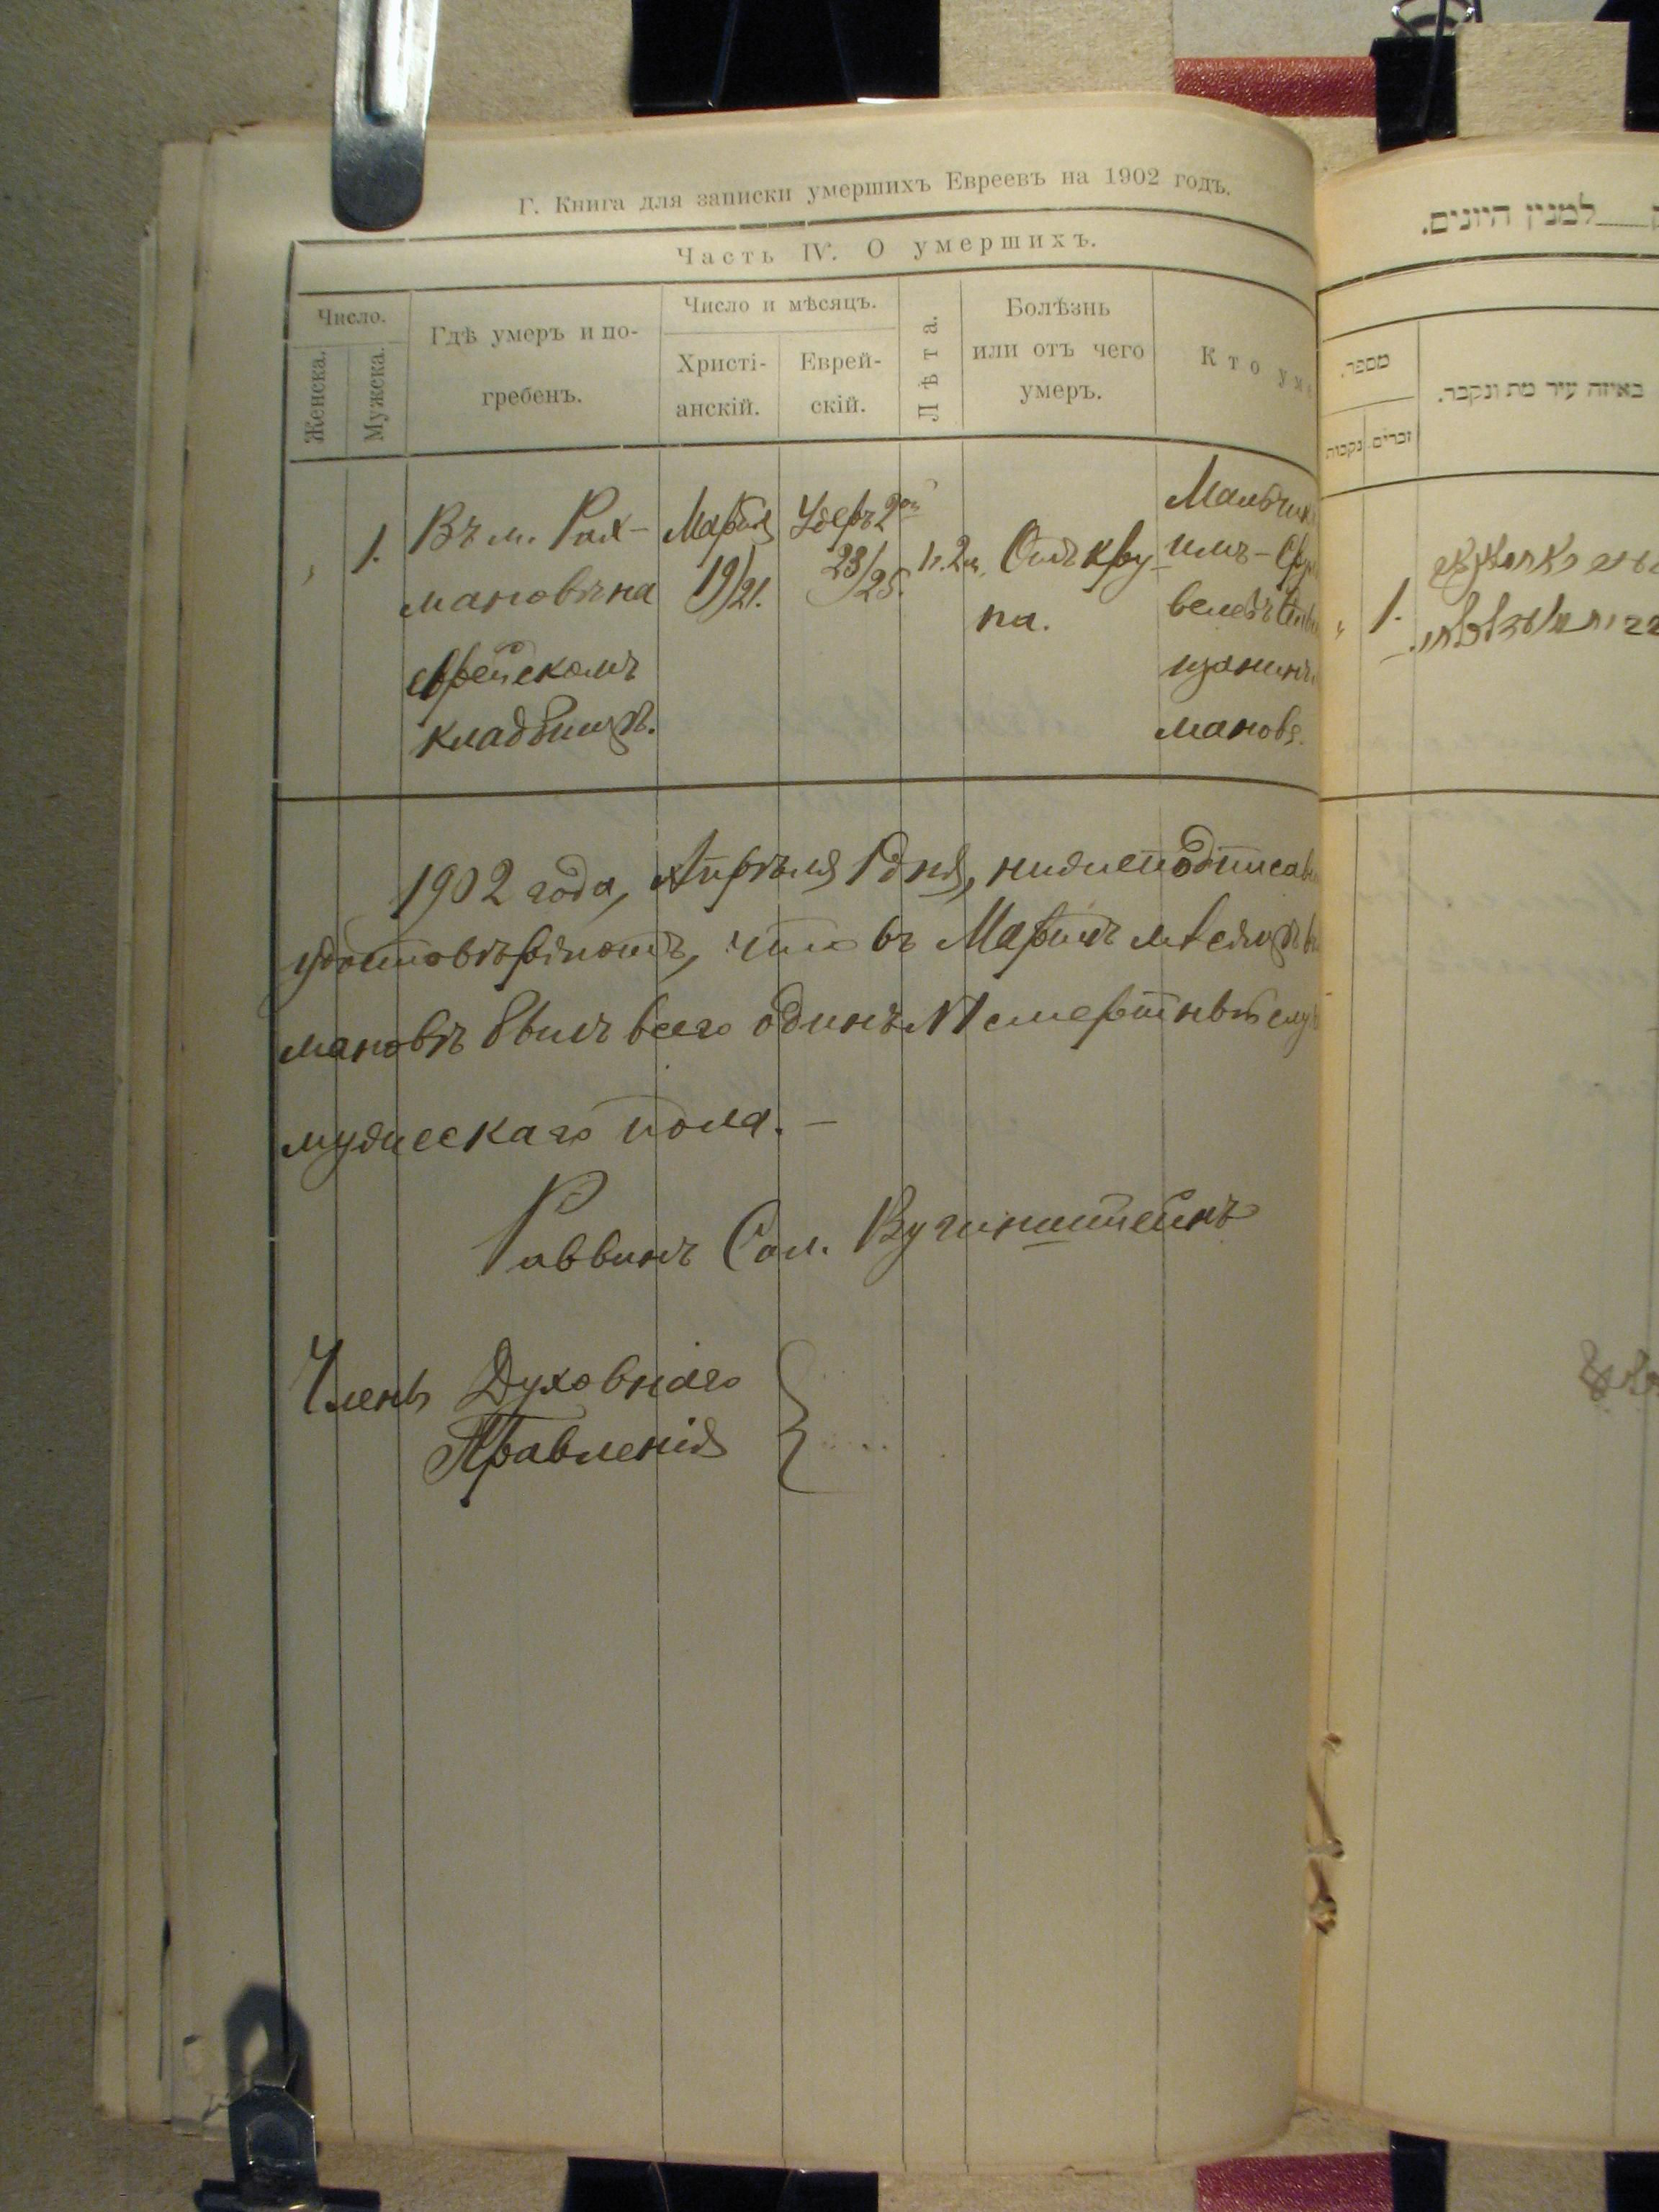 Г. Книга для записки умершихъ Евреевъ на 1902 годъ.
Часть IV. О умершихъ.
Число.
Женска.
Мужска.
Гдѣ умеръ и по-
гребенъ.
Число и мѣсяцъ.
Христі-
анскій.
Еврей-
скій.
Лѣта.
Болѣзнь
или отъ чего
умеръ.
Кто уме
1.
Въ м. Рах-
мановѣ на
еврейскомъ
кладбищѣ.
Марта
19/21.
23/25.
Отъ кру
па.
Мальчик
мановѣ
1902 года, Апрѣля 1 дня, нижеподписав
удостовѣряютъ, что въ Мартѣ мѣсяцѣ въ
мановѣ былъ всего одинъ №1 смертный слу
мужескаго пола. —
Раввинъ Сол.
Члены Духовнаго
Правленія
למנין היונים.
מספר.
נקבות
זכרים
באיזה עיר מת ונקבר.
1.